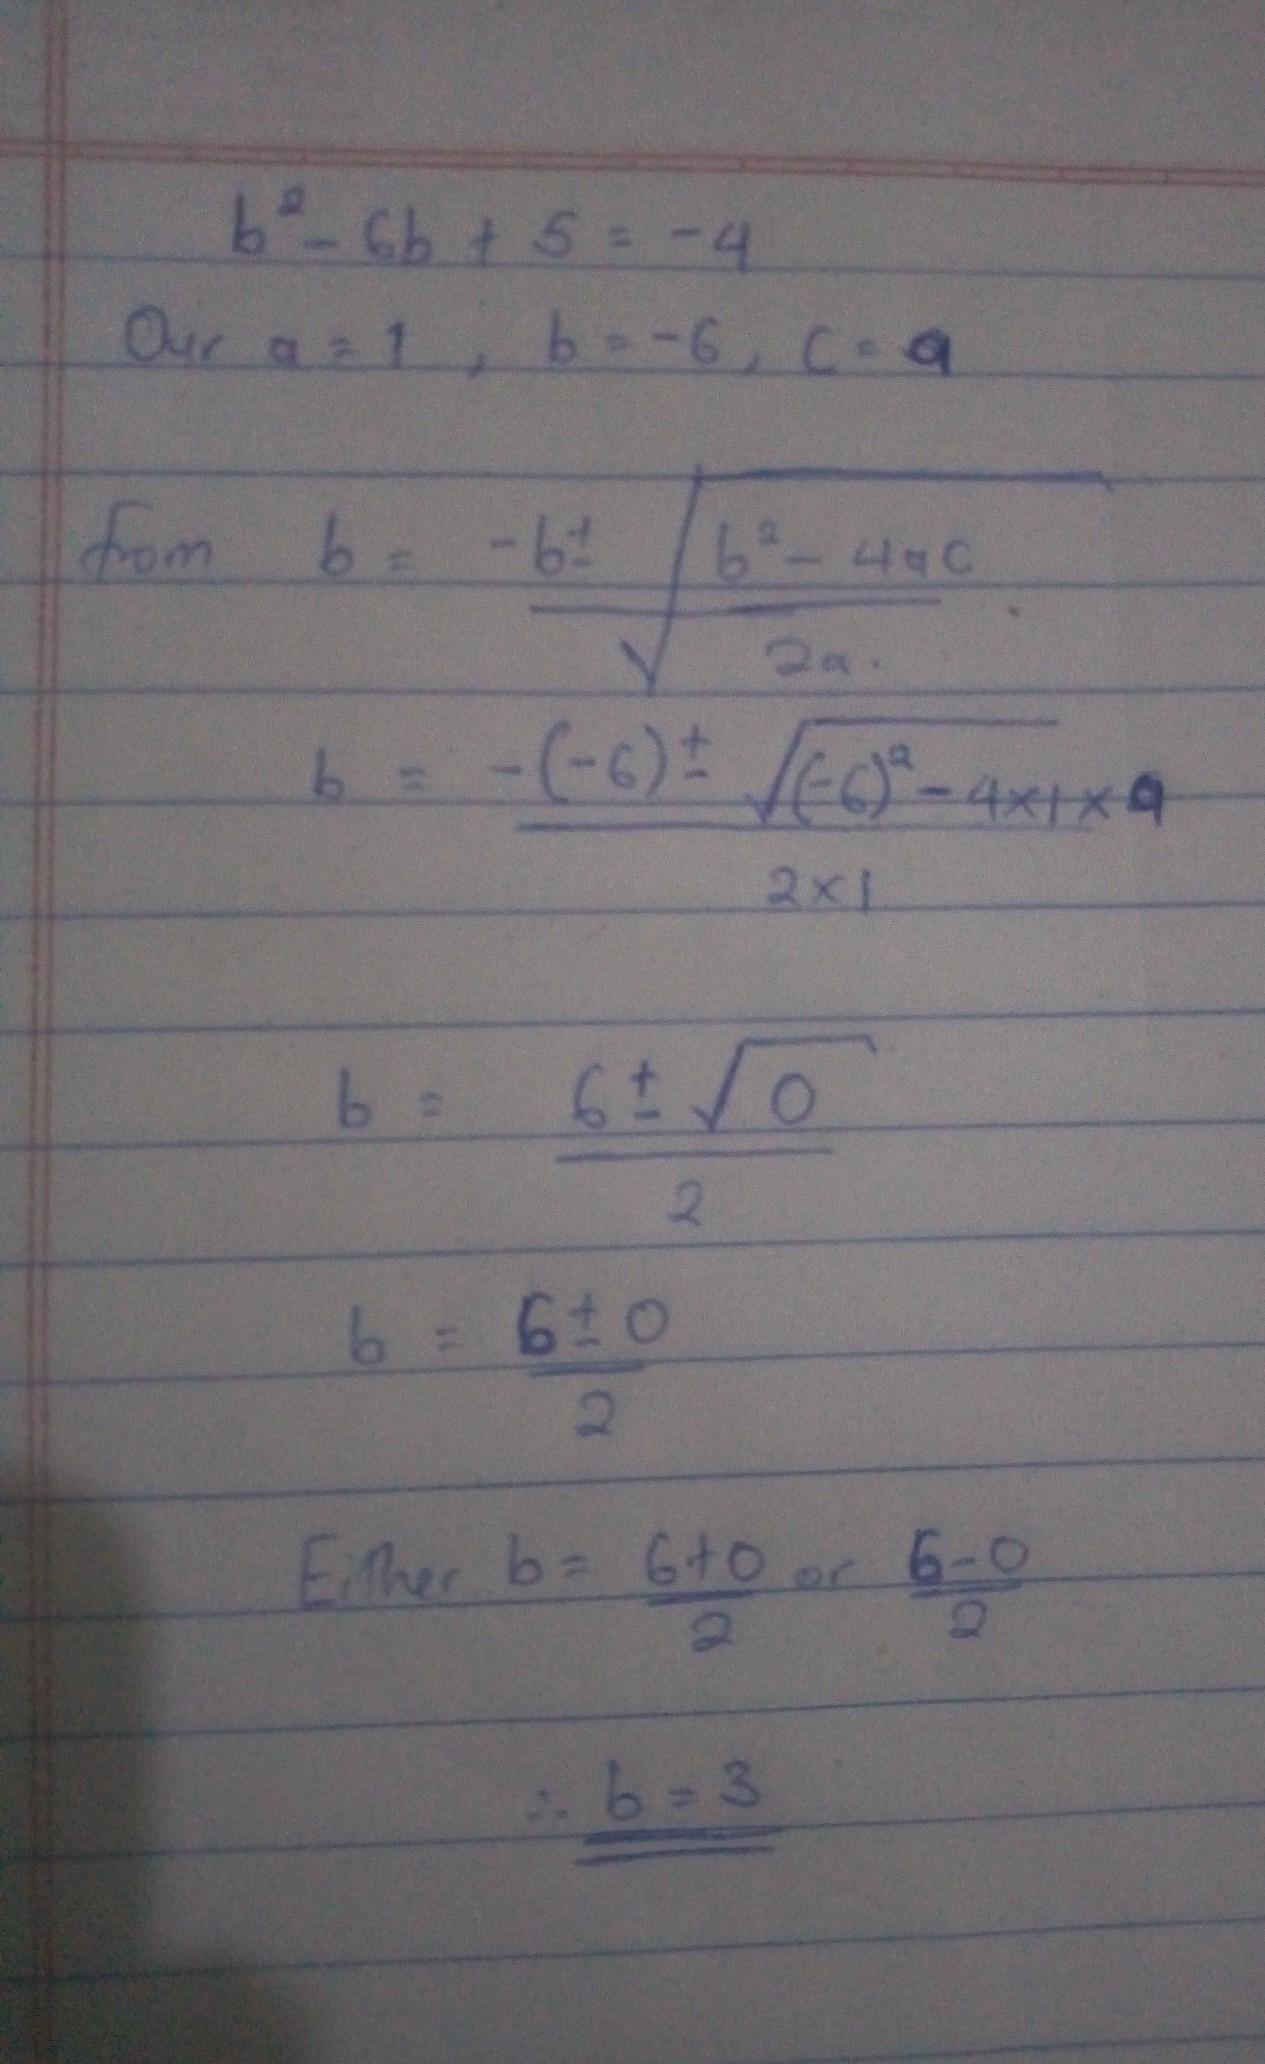 b² - 6b + 5 = -4
Our a = 1 , b = -6, c = 9
from b = -b ± √b² - 4ac
2a.
b = -(-6) ± √(-6)² - 4×1×9
2×1
b = 6 ± √0
2
b = 6 ± 0
2
Either b = 6+0 or 6-0
2 2
∴ b = 3